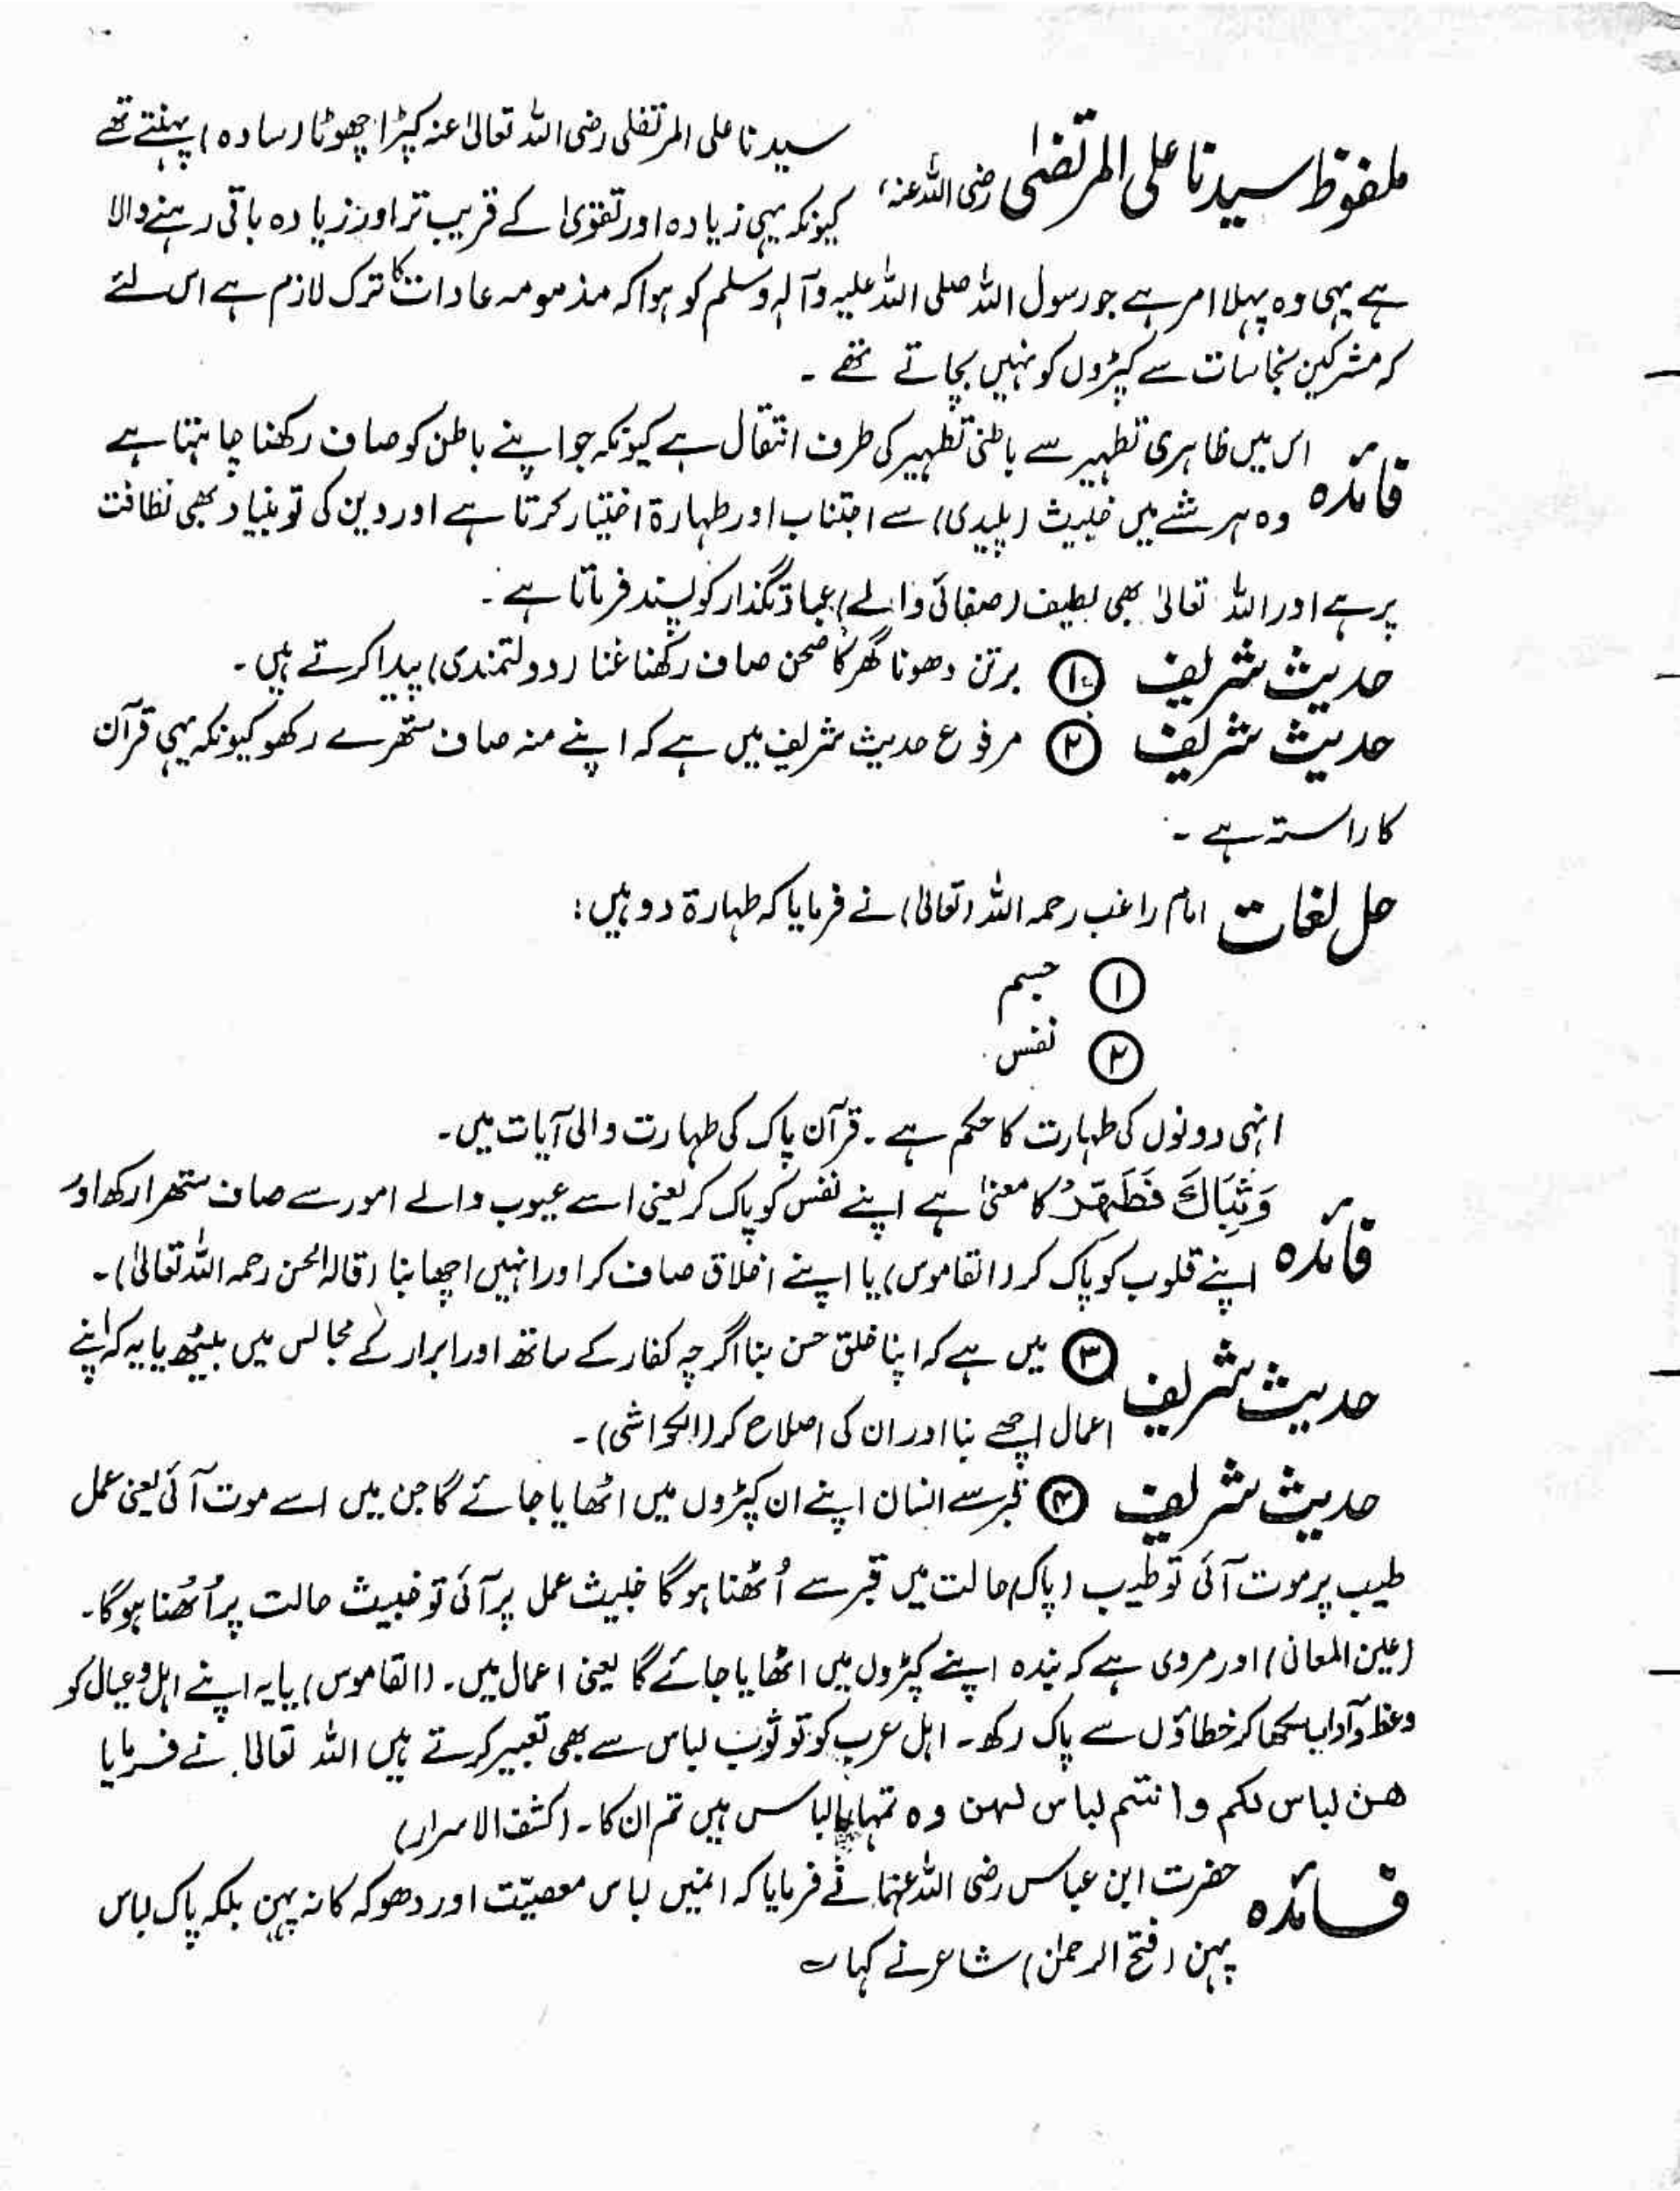 ملفوظ سیدنا علی المرتضیٰ رضی اللہ عنہ، سیدنا علی المرتضٰی رضی اللہ تعالیٰ عنہ کپڑا چھوٹا (سادہ) پہنتے تھے
کیونکہ یہی زیادہ اور تقویٰ کے قریب تر اور زیادہ باقی رہنے والا
ہے یہی وہ پہلا امر ہے جو رسول اللہ صلی اللہ علیہ وآلہٖ وسلم کو ہوا کہ مذمومہ عادات کا ترک لازم ہے اس لئے
کہ مشرکین نجاسات سے کپڑوں کو نہیں بچاتے تھے ۔
فائدہ اس میں ظاہری تطہیر سے باطنی تطہیر کی طرف انتقال ہے کیونکہ جو اپنے باطن کو صاف رکھنا چاہتا ہے
وہ ہر شے میں خبیث (پلیدی) سے اجتناب اور طہارۃ اختیار کرتا ہے اور دین کی تو بنیاد بھی نظافت
پر ہے اور اللہ تعالیٰ بھی لطیف (صفائی والے) عبادتگذار کو پسند فرماتا ہے ۔
حدیث شریف ① برتن دھونا گھر کا صحن صاف رکھنا غنا (دولتمندی) پیدا کرتے ہیں ۔
حدیث شریف ② مرفوع حدیث شریف میں ہے کہ اپنے منہ صاف ستھرے رکھو کیونکہ یہی قرآن
کا راستہ ہے ۔
حل لغات امام راغب رحمہ اللہ (تعالیٰ) نے فرمایا کہ طہارۃ دو ہیں :
① جسم
② نفس
انہی دونوں کی طہارت کا حکم ہے ۔ قرآن پاک کی طہارت والی آیات میں ۔
فائدہ وَثِیَابَکَ فَطَہِّرْ کا معنیٰ ہے اپنے نفس کو پاک کر یعنی اسے عیوب والے امور سے صاف ستھرا رکھ اور
اپنے قلوب کو پاک کر (القاموس) یا اپنے اخلاق صاف کر اور انہیں اچھا بنا (قالہ الحسن رحمہ اللہ تعالیٰ) ۔
حدیث شریف ③ میں ہے کہ اپنا خلق حسن بنا اگرچہ کفار کے ساتھ اور ابرار کے مجالس میں بیٹھ یا یہ کہ اپنے
اعمال اچھے بنا اور ان کی اصلاح کر (الحواشی) ۔
حدیث شریف ④ قبر سے انسان اپنے ان کپڑوں میں اٹھایا جائے گا جن میں اسے موت آئی یعنی عمل
طیب پر موت آئی تو طیب (پاک) حالت میں قبر سے اُٹھنا ہوگا خبیث عمل پر آئی تو خبیث حالت پر اُٹھنا ہوگا ۔
(عین المعانی) اور مروی ہے کہ بندہ اپنے کپڑوں میں اٹھایا جائے گا یعنی اعمال میں ۔ (القاموس) یا یہ اپنے اہل و عیال کو
وعظ و آداب سکھا کر خطاؤں سے پاک رکھ ۔ اہل عرب کو تو ثوب لباس سے بھی تعبیر کرتے ہیں اللہ تعالیٰ نے فرمایا
ھن لباس لکم وانتم لباس لہن وہ تمہارا لباس ہیں تم ان کا ۔ (کشف الاسرار)
فائدہ حضرت ابن عباس رضی اللہ عنہما نے فرمایا کہ انہیں لباس معصیّت اور دھوکہ کا نہ پہن بلکہ پاک لباس
پہن (فتح الرحمٰن) شاعر نے کہا ؎